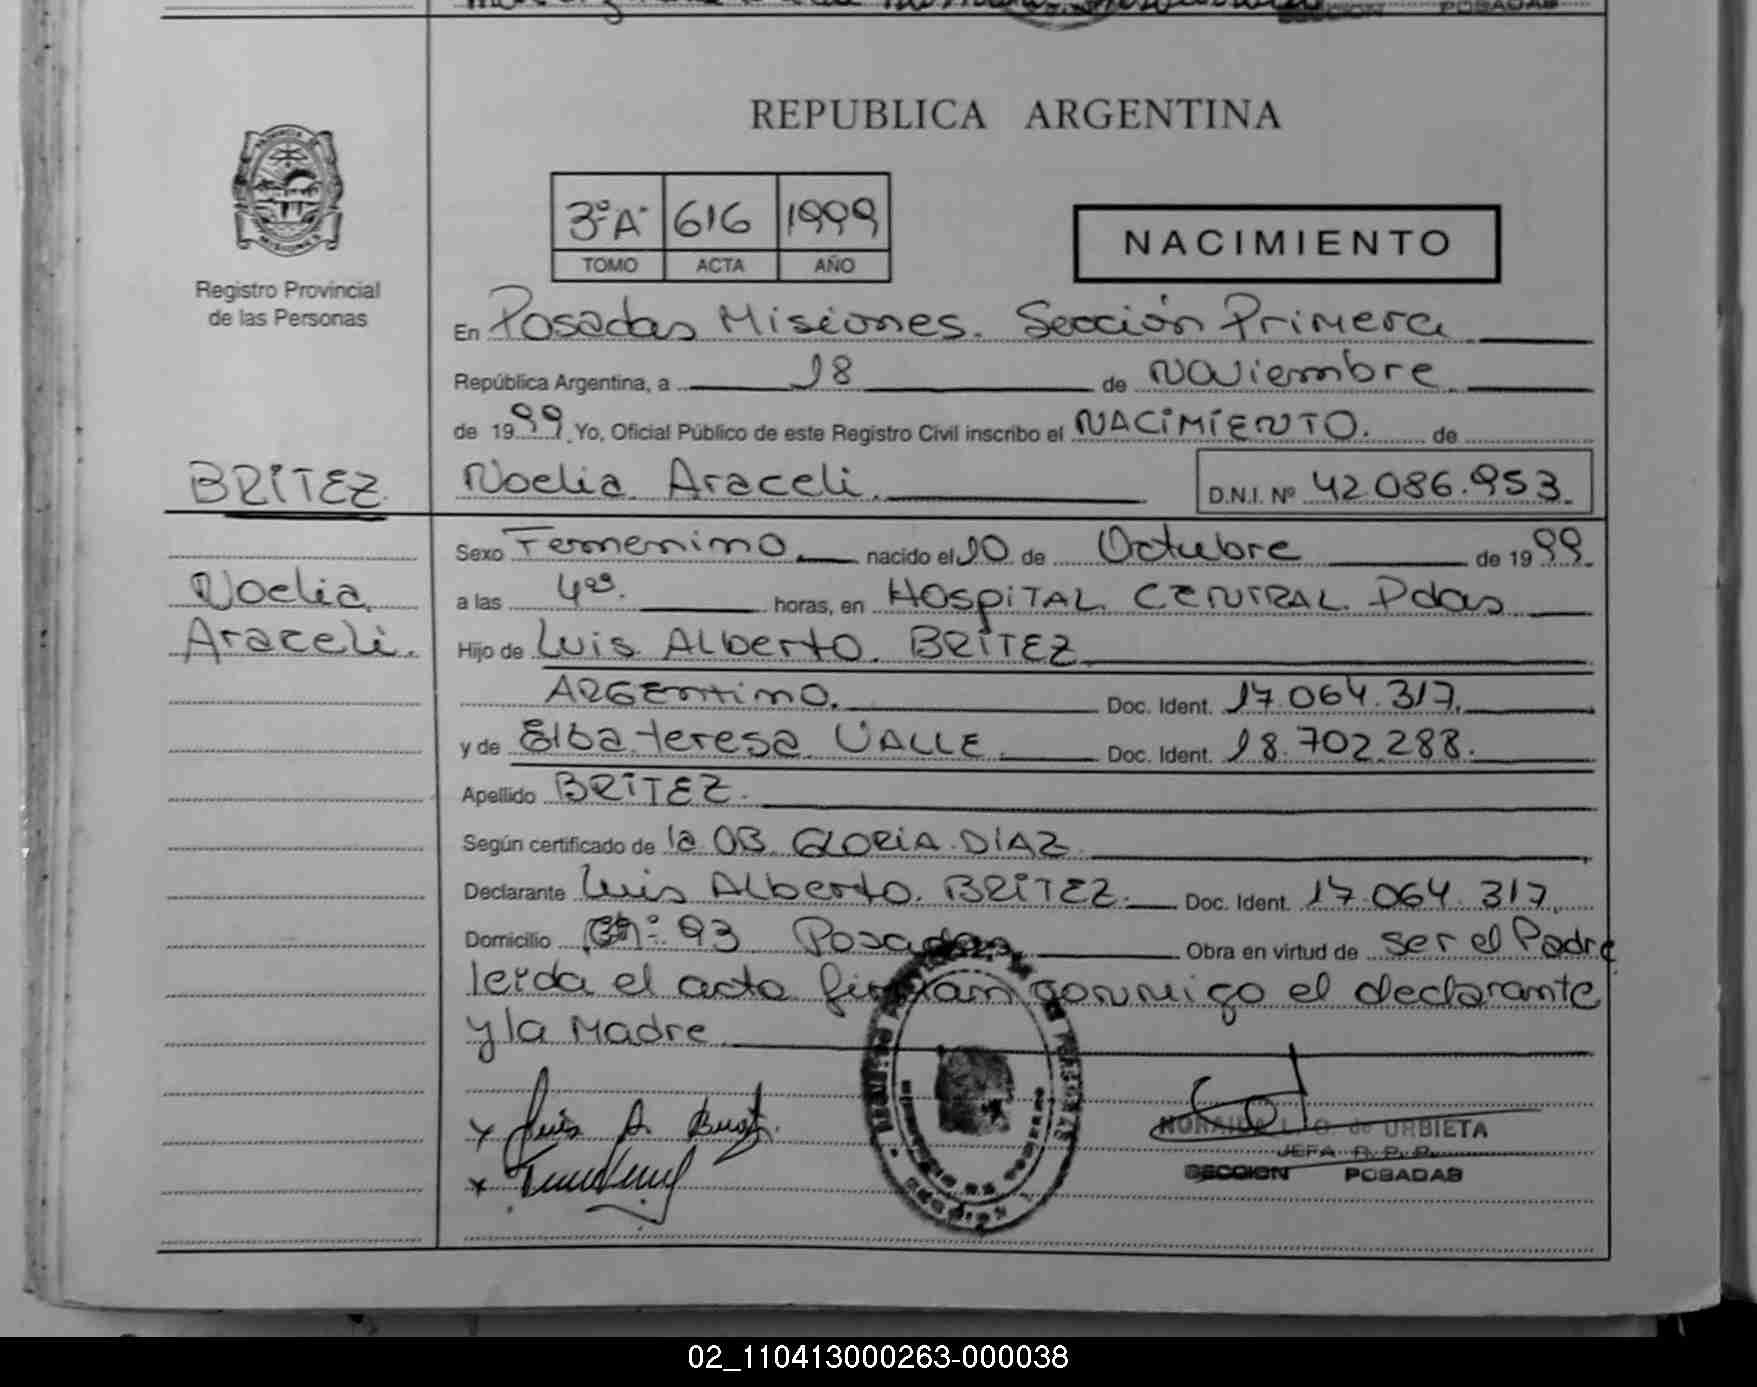 REPUBLICA ARGENTINA
PROVINCIA
MISIONES
Registro Provincial
de las Personas
3º A 616 1999
TOMO ACTA AÑO
NACIMIENTO
En Posadas Misiones. Sección Primera
República Argentina, a 18 de Noviembre
de 1999 Yo, Oficial Público de este Registro Civil inscribo el NACIMIENTO. de
BRITEZ Noelia Araceli. D.N.I. Nº 42.086.953.
Sexo Femenino. nacido el 10 de Octubre de 1999.
Noelia a las 4 horas, en HOSPITAL CENTRAL Pdas
Araceli. Hijo de Luis Alberto. BRITEZ
ARGENTINO. Doc. Ident. 17.064.317.
y de Elba teresa VALLE. Doc. Ident. 18.702.288.
Apellido BRITEZ.
Según certificado de la OB. GLORIA DIAZ
Declarante Luis Alberto. BRITEZ. Doc. Ident. 17.064.317.
Domicilio 93 Posadas Obra en virtud de ser el Padre
leida el acta firman conmigo el declarante
y la Madre
x Luis A. Britez
x
URBIETA
JEFA R. P. P.
SECCION POSADAS
02_110413000263-000038